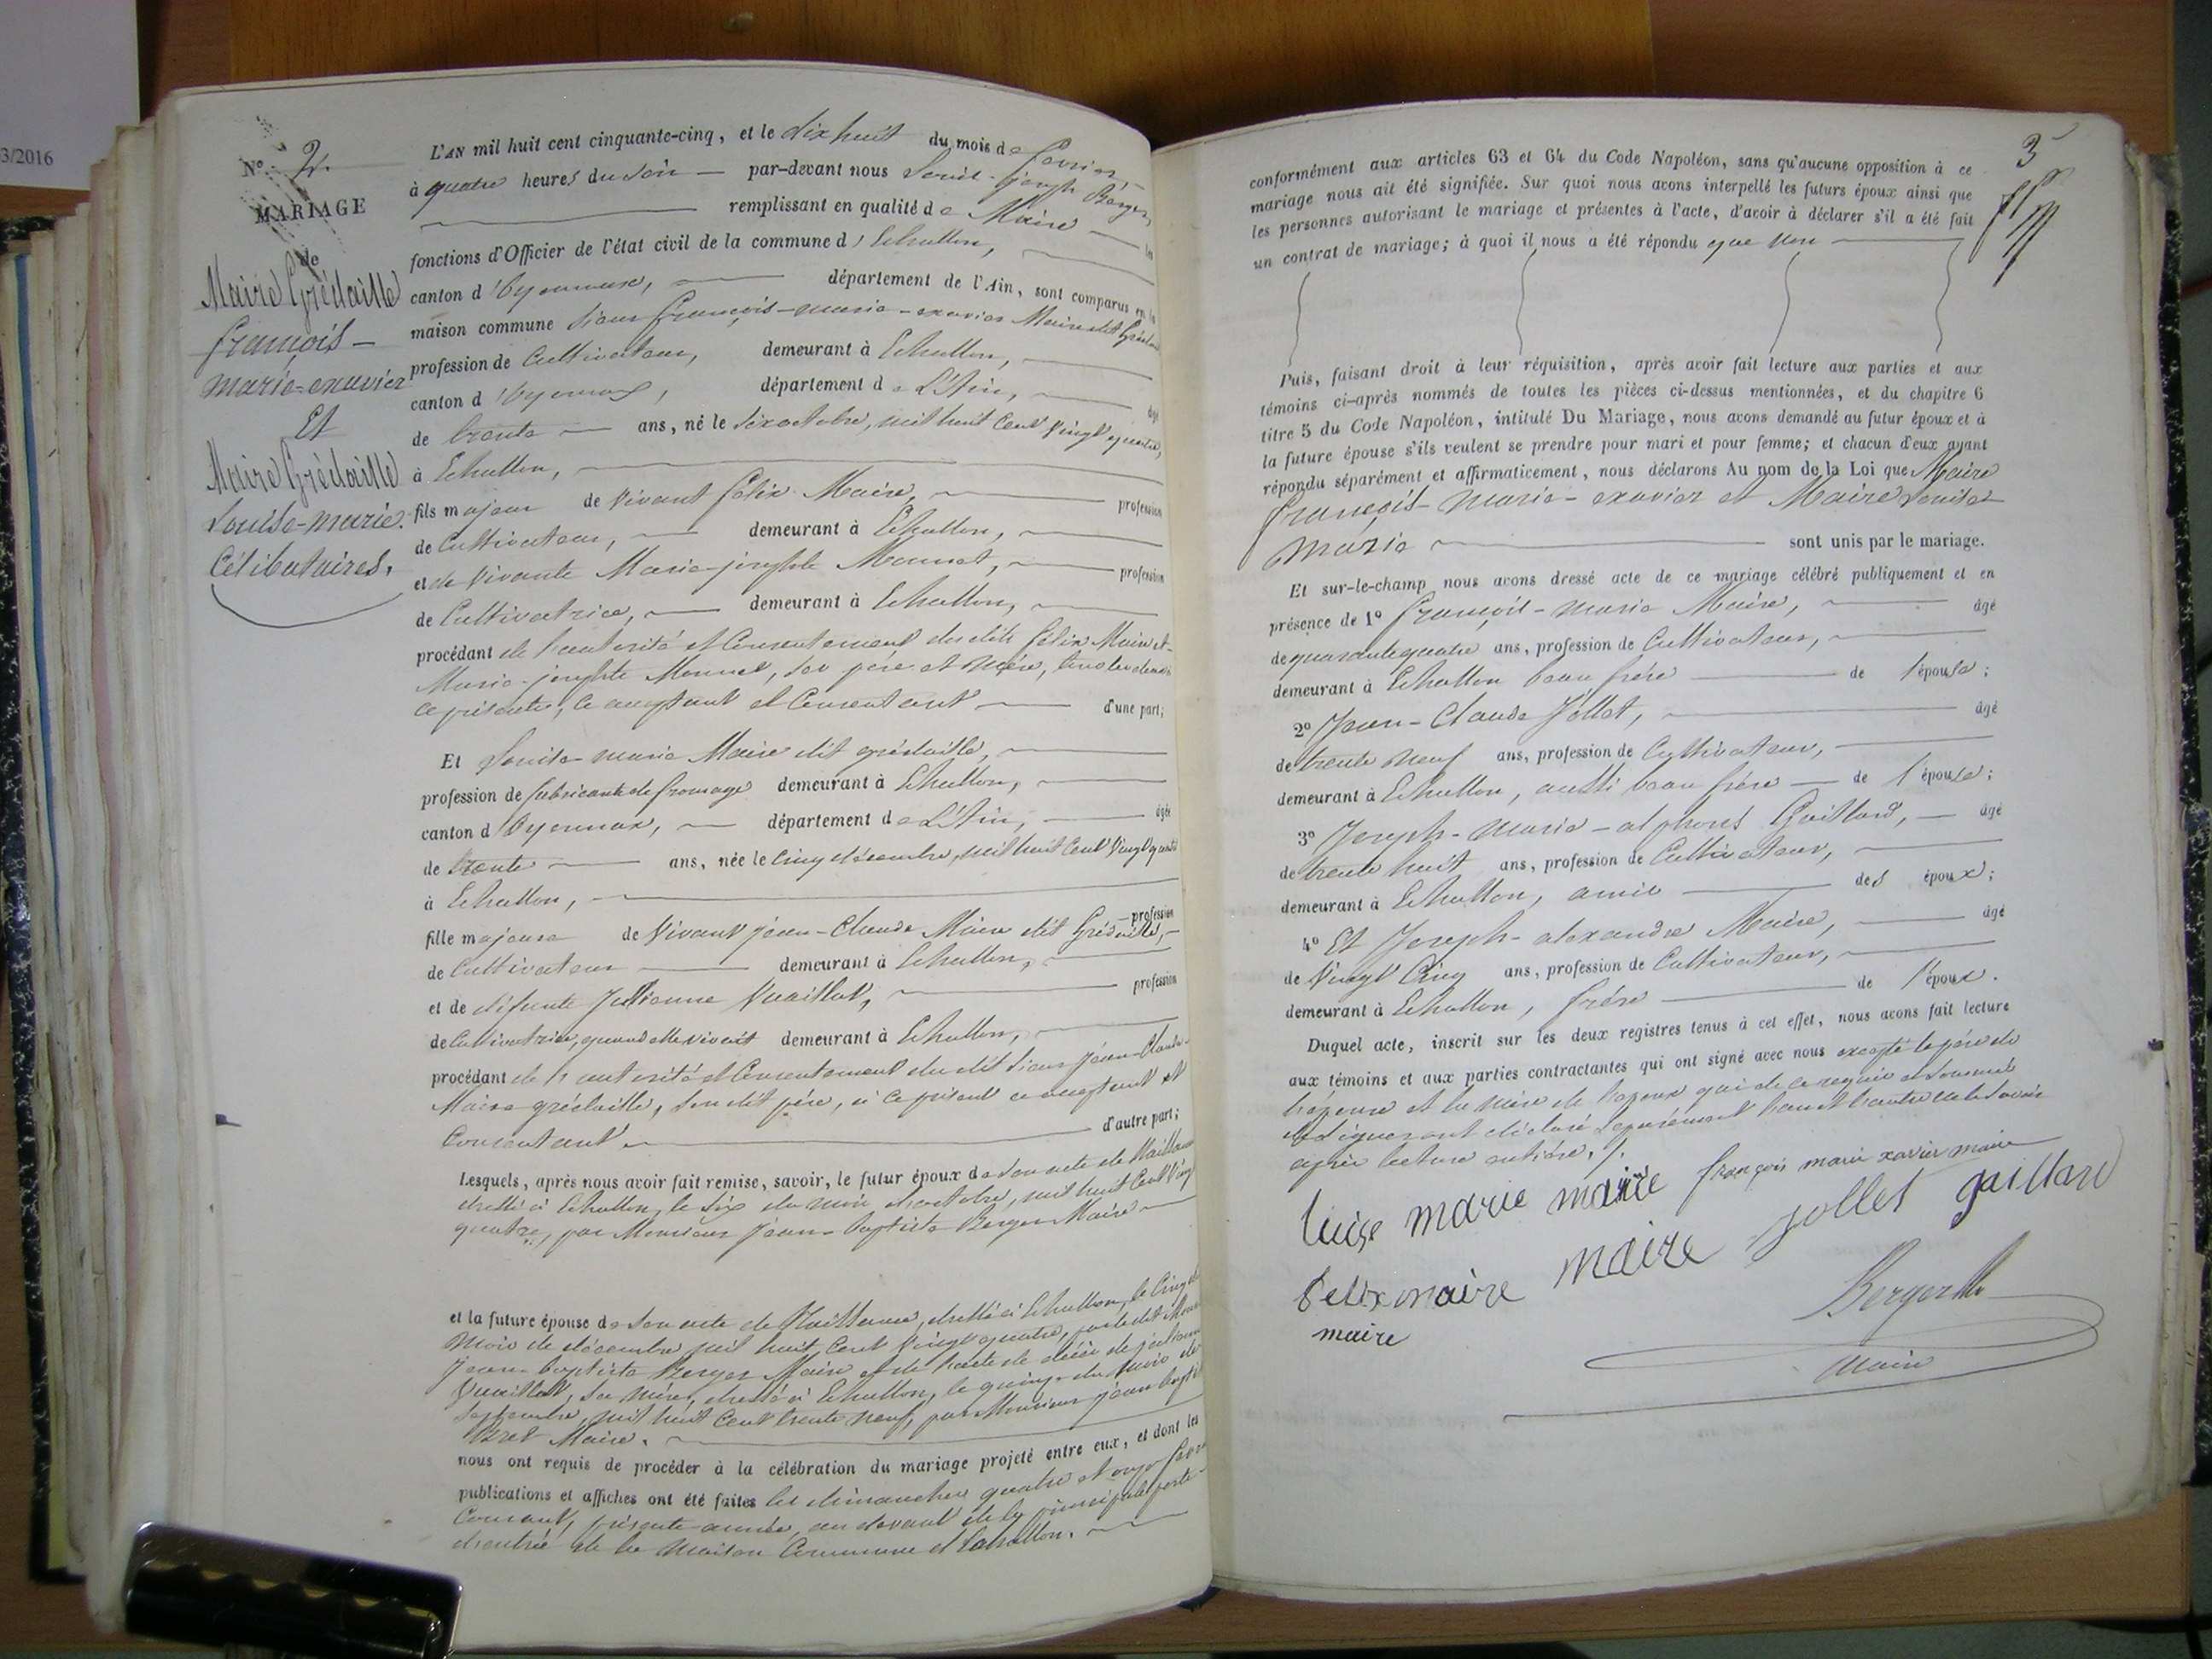 3/2016
N.º 2.
MARIAGE
de
Maire Grédaille
françois-
marie-exavier
Et
Maire Grédaille
Louise-marie.
Célibataires.
L'AN mil huit cent cinquante-cinq, et le dix huit du mois de février,
à quatre heures du soir par-devant nous Louis-joseph Berger,
remplissant en qualité de Maire les
fonctions d'Officier de l'état civil de la commune d'Echallon,
canton d'Oyonnax, département de l'Ain, sont comparus en la
maison commune sieur françois-marie-exavier Maire dit Grédaille
profession de Cultivateur, demeurant à Echallon,
canton d'Oyonnax, département de L'Ain, âgé
de trente ans, né le six octobre, mil huit Cent Vingt quatre,
à Echallon,
fils majeur de Vivant félix Maire, profession
de Cultivateur, demeurant à Echallon,
et de Vivante Marie-josephte Monnet, profession
de Cultivatrice, demeurant à Echallon,
procédant de l'autorité et Consentement desdits félix Maire et
Marie-josephte Monnet, ses père et mère, tous les deux
ce présents, ce acceptant et Consentant d'une part;
Et Louise-marie Maire dit grédaille,
profession de fabricante de fromage demeurant à Echallon,
canton d'Oyonnax, département de L'Ain, âgée
de trente ans, née le Cinq décembre, mil huit Cent Vingt quatre
à Echallon,
fille majeure de Vivant jean-Claude Maire dit Grédaille, profession
de Cultivateur demeurant à Echallon,
et de défunte Julienne Vuaillat, profession
de Cultivatrice, quand elle vivoit demeurant à Echallon,
procédant de l'autorité et Consentement du dit sieur jean-Claude
Maire grédaille, son dit père, ici ce présent ce acceptant et
Consentant d'autre part;
Lesquels, après nous avoir fait remise, savoir, le futur époux de son acte de Naissance
dressé à Echallon, le six du mois d'octobre, mil huit Cent Vingt
quatre, par Monsieur jean-baptiste Berger Maire
et la future épouse de son acte de Naissance, dressé à Echallon, le Cinq du
mois de décembre mil huit Cent Vingt quatre, par le dit Monsieur
jean-baptiste Berger Maire et de l'acte de décès de julienne
Vuaillat, sa mère, dressé à Echallon, le quinze du mois de
septembre, mil huit Cent trente neuf, par Monsieur jean baptiste
Bret Maire.
nous ont requis de procéder à la célébration du mariage projeté entre eux, et dont les
publications et affiches ont été faites les dimanches quatre et onze février
Courant, présente année, au devant de la principale porte
d'entrée de la Maison Commune d'Echallon.
3
conformément aux articles 63 et 64 du Code Napoléon, sans qu'aucune opposition à ce
mariage nous ait été signifiée. Sur quoi nous avons interpellé les futurs époux ainsi que
les personnes autorisant le mariage et présentes à l'acte, d'avoir à déclarer s'il a été fait
un contrat de mariage; à quoi il nous a été répondu que non
Puis, faisant droit à leur réquisition, après avoir fait lecture aux parties et aux
témoins ci-après nommés de toutes les pièces ci-dessus mentionnées, et du chapitre 6
titre 5 du Code Napoléon, intitulé Du Mariage, nous avons demandé au futur époux et à
la future épouse s'ils veulent se prendre pour mari et pour femme; et chacun d'eux ayant
répondu séparément et affirmativement, nous déclarons Au nom de la Loi que Maire
françois-marie-exavier et Maire Louise
marie sont unis par le mariage.
Et sur-le-champ nous avons dressé acte de ce mariage célébré publiquement et en
présence de 1º françois-marie Maire, âgé
de quarante quatre ans, profession de Cultivateur,
demeurant à Echallon beau frère de l'épouse;
2º Jean-Claude Jollet, âgé
de trente neuf ans, profession de Cultivateur,
demeurant à Echallon, aussi beau frère de l'épouse;
3º Joseph-marie-alphons Gaillard, âgé
de trente huit ans, profession de Cultivateur,
demeurant à Echallon, amie des époux;
4º Et Joseph-alexandre Maire, âgé
de Vingt Cinq ans, profession de Cultivateur,
demeurant à Echallon, frère de l'époux.
Duquel acte, inscrit sur les deux registres tenus à cet effet, nous avons fait lecture
aux témoins et aux parties contractantes qui ont signé avec nous excepté le père de
l'épouse et la mère de l'époux qui de ce requis et sommés
de signer ont déclaré séparément l'un et l'autre ne le savoir
après lecture entière.
luise marie maire françois marie xavier maire
felix maire maire jollet gaillard
maire
Berger
Maire